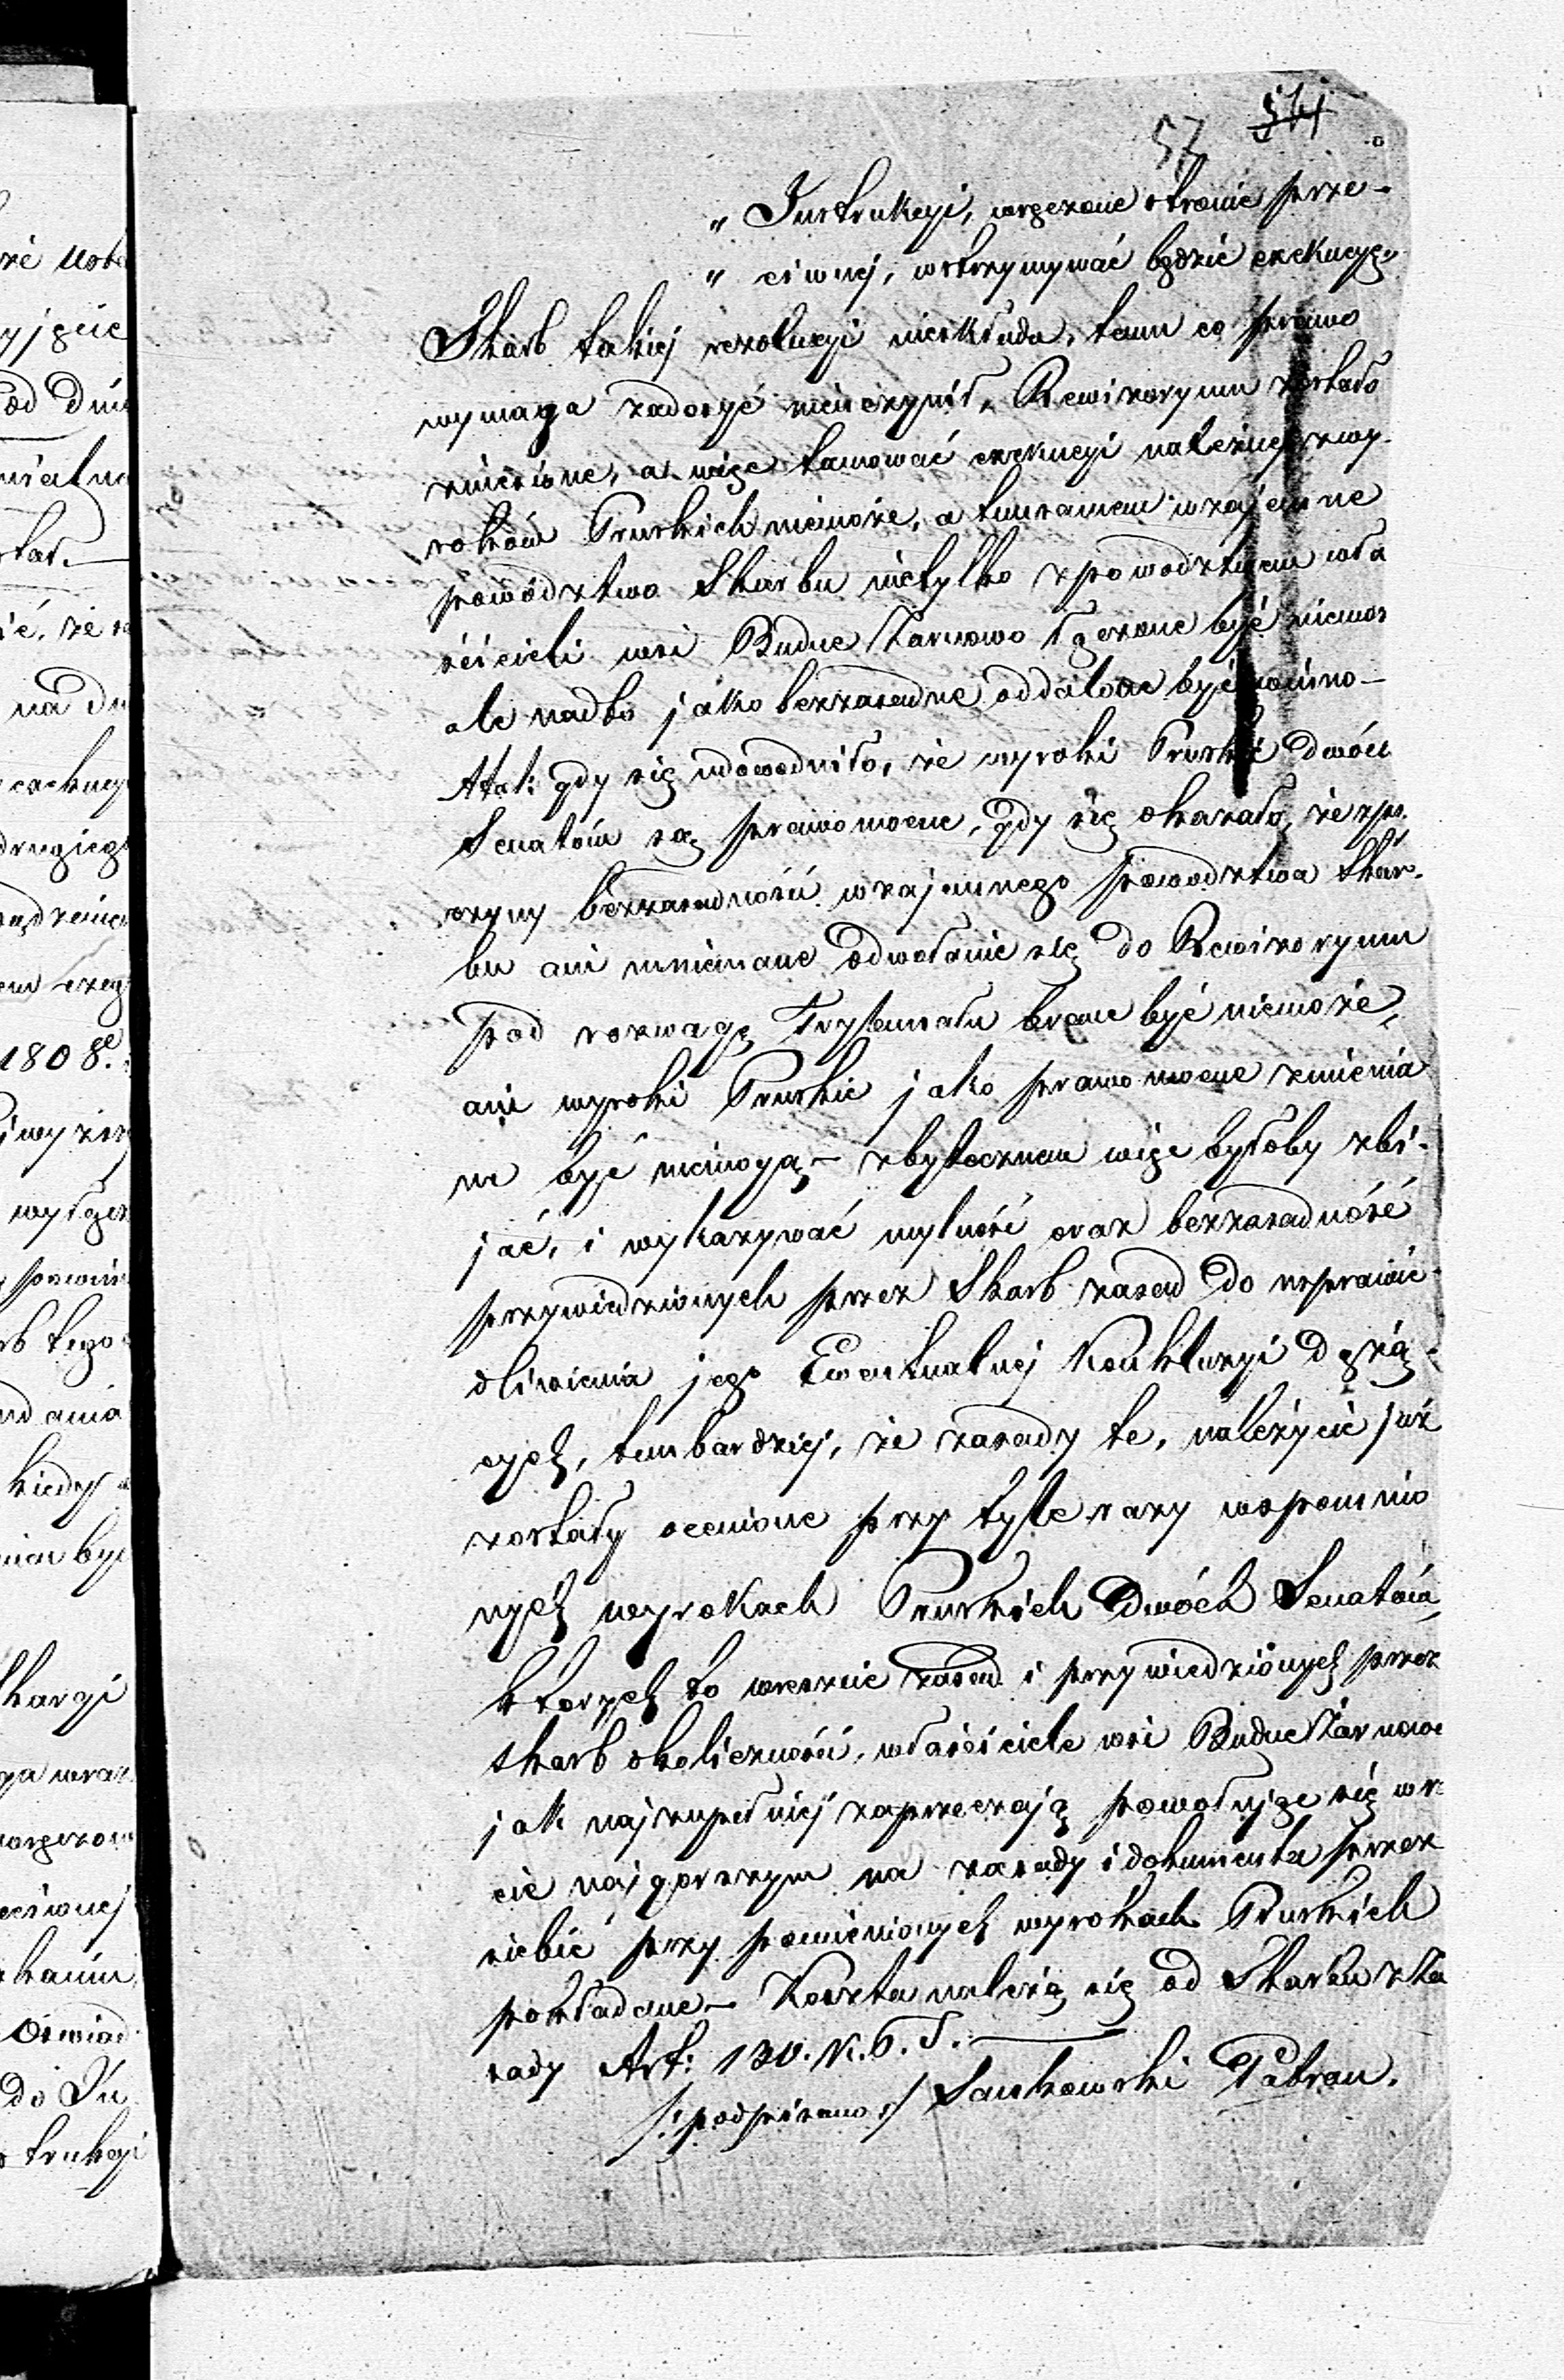 57 514
„ Instrukcyi, wręczone stronie prze-
„ ciwnej, wstrzymywać będzie exekucyę„
Skarb takiej rezolucyi nieskłada, temu co prawo
wymaga zadosyć nieuczynił, Rewizorymu zostało
zniesione, a więc tamować exekucyi należnej zwy-
roków Pruskich niemoże, a temsamem wzajemne
powództwo Skarbu nietylko zpowodztwem wła
ścicieli wsi Budne Żarnowo łączone być niemoż
ale nadto jako bezzasadne oddalone być winno —
Atak gdy się udowodniło, że wyroki Pruskie dwóch
Senatów są prawomocne, gdy się okazało, że zpr.
czyny bezzasadności wzajemnego powodztwa Skar-
bu ani mniemane odwołanie się do Rewizorymu
pod rozwagę Trybunału brane być niemoże,
ani wyroki Pruskie jako prawomocne zmienia
ne być niemogą, — zbytecznem więc byłoby zbi-
jać, i wykazywać mylność oraz bezzasadność
przywiedzionych przez Skarb zasad do usprawie-
dliwienia jego Ewentualnej Konkluzyi dążą-
cych, tembardziej, że zasady te, należycie już
zostały ocenione przy tyle razy wspomnio
nych wyrokach Pruskich Dwóch Senatów,
których to wreszcie zasad i przywiedzionych przez
skarb okoliczności, właściciele wsi Budne Żarnowo
jak najzupełniej zaprzeczają powołując się w ra
zie najgorszym na zasady i dokumenta przez
siebie przy pomienionych wyrokach Pruskich
pokładane — Koszta należą się od Skarbu z Za
sady Art: 130. K. P. S. —
/: podpisano :/ Sankowski Patron.